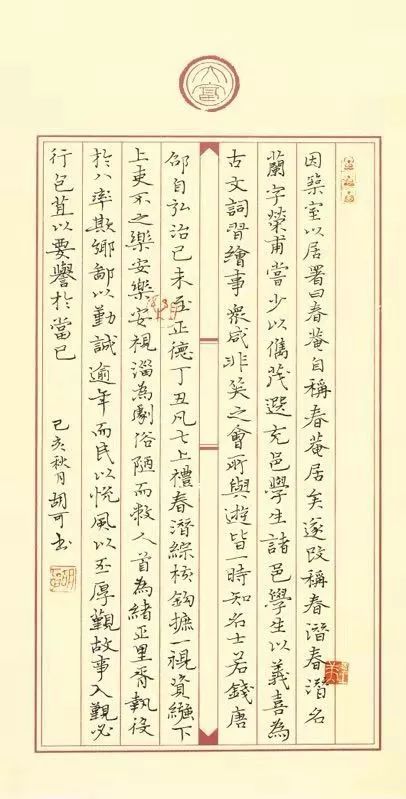 因築室以居署曰春菴自稱春菴居矣遂改稱春潛春潛名
蘭字榮甫嘗少以儁茂選充邑學生諸邑學生以義喜為
古文詞習繪事衆咸非笑之會所與遊皆一時知名士若錢唐
邵自弘治己未至正德丁丑凡七上禮春潛綜核鈎摭一視資緐下
上吏不之樂安樂安視淄為劇俗陋而敎人首為緒正里胥執役
於八率欺鄉鄙以勤誠逾年而民以悅風以丕厚覲故事入覲必
行包苴以要譽於當已
己亥秋月 胡可書